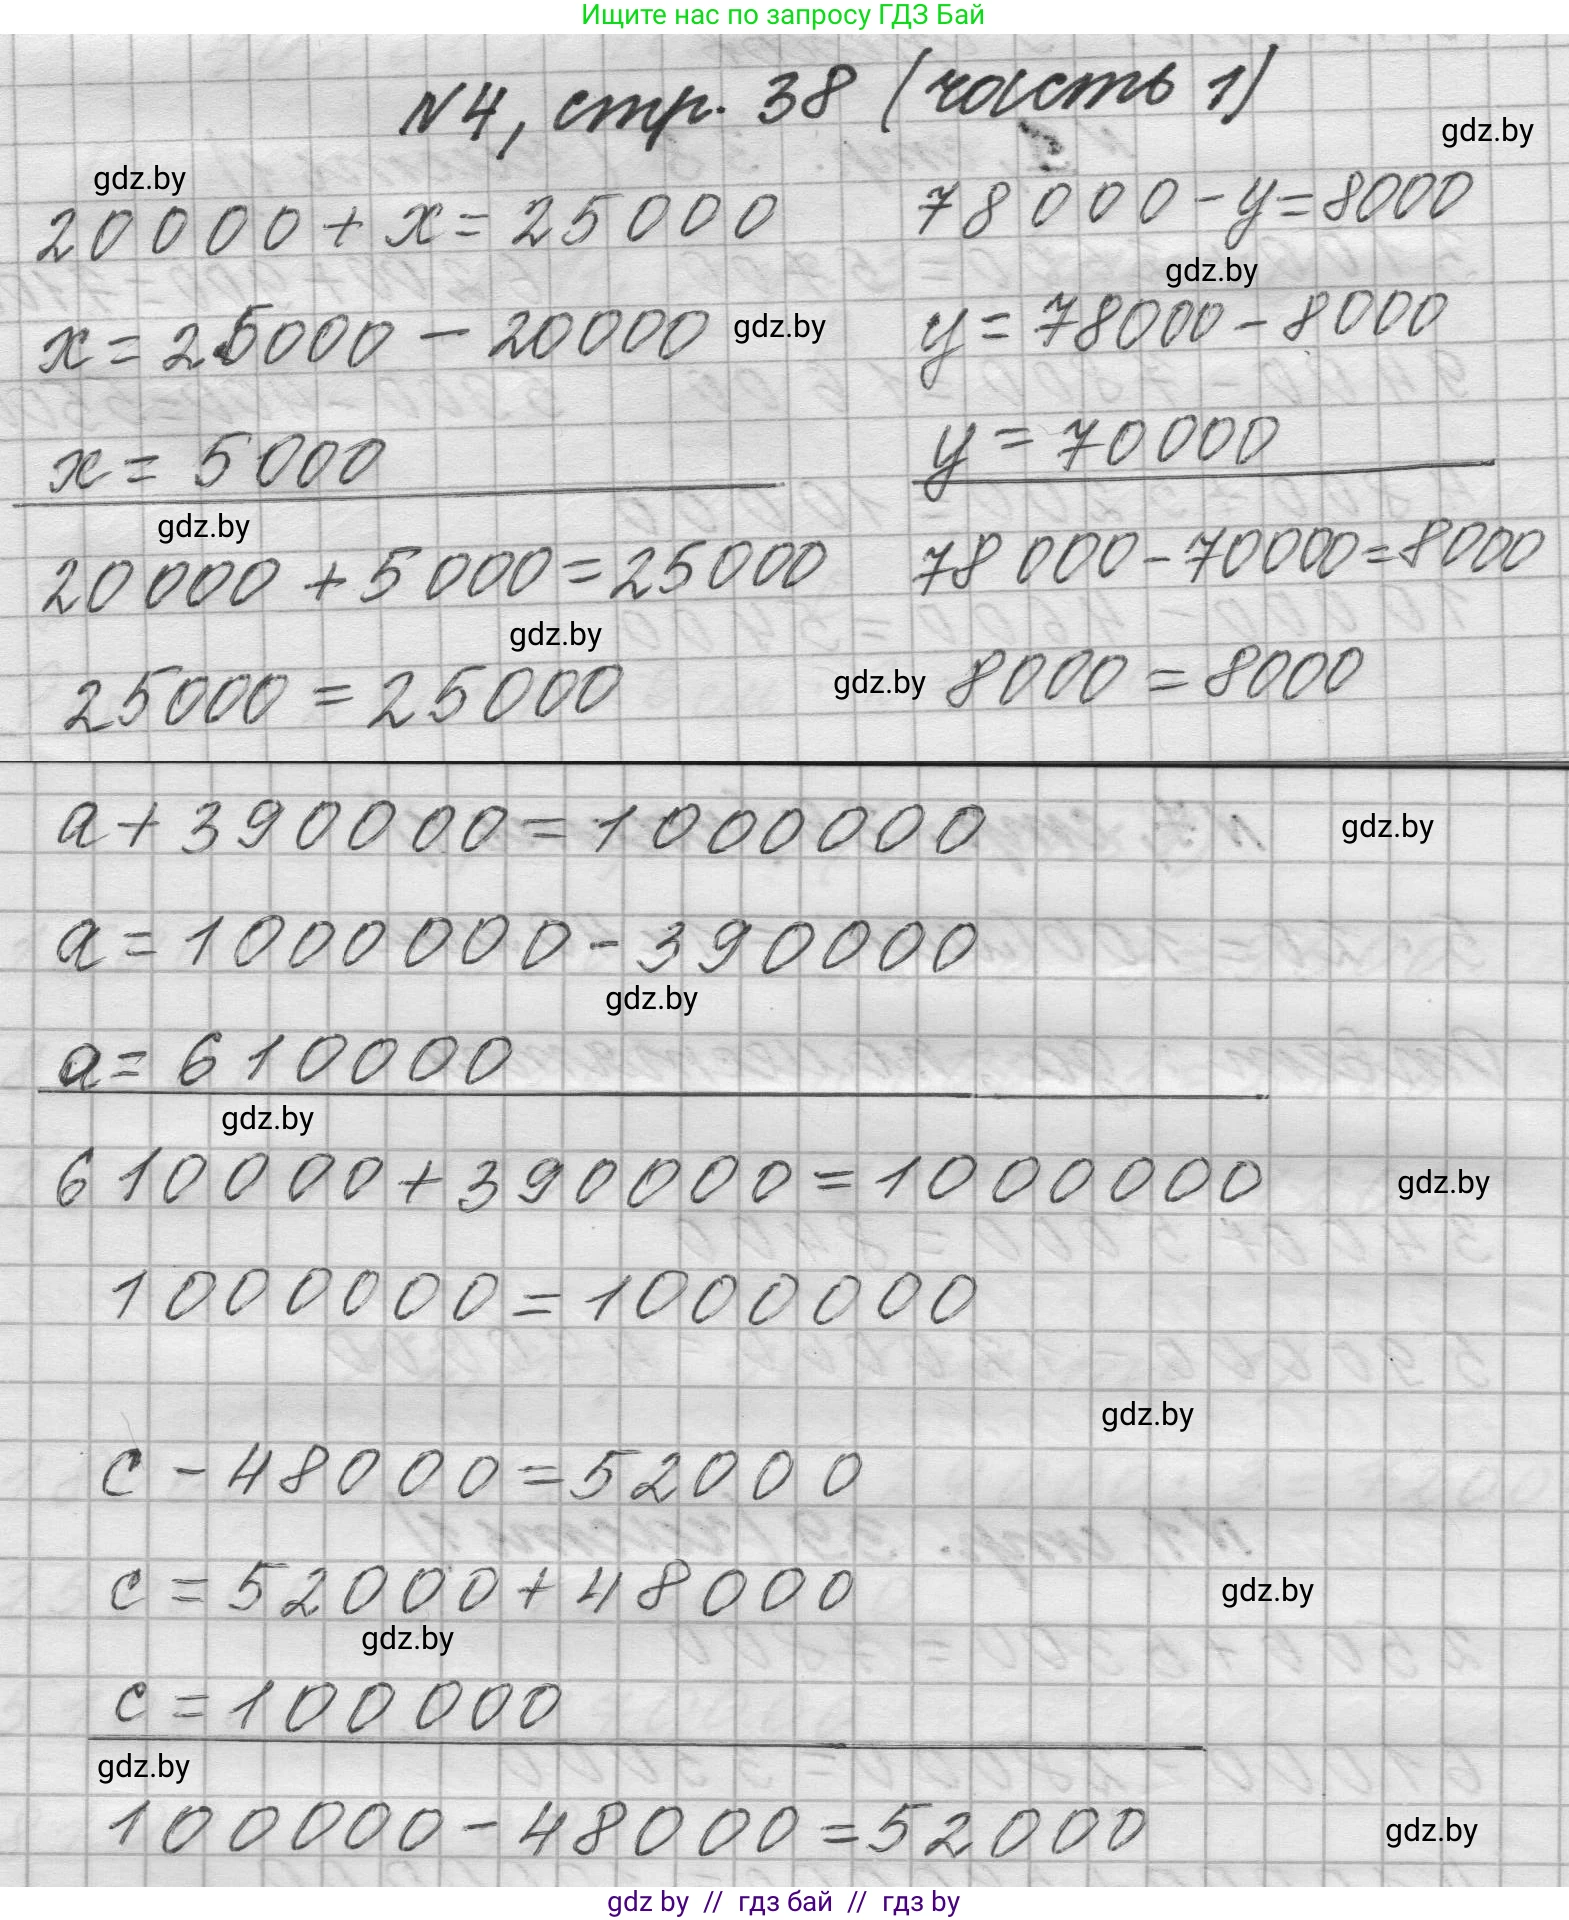 Ищите нас по запросу ГДЗ Бай
№4, стр. 38 (часть 1)
gdz.by
gdz.by
20000 + x = 25000
x = 25000 - 20000
gdz.by
x = 5000
gdz.by
20000 + 5000 = 25000
gdz.by
25000 = 25000
78000 - y = 8000
gdz.by
y = 78000 - 8000
y = 70000
78000 - 70000 = 8000
gdz.by
8000 = 8000
a + 390000 = 1000000
gdz.by
a = 1000000 - 390000
gdz.by
a = 610000
gdz.by
610000 + 390000 = 1000000
gdz.by
1000000 = 1000000
gdz.by
c - 48000 = 52000
c = 52000 + 48000
gdz.by
gdz.by
c = 100000
gdz.by
100000 - 48000 = 52000
gdz.by
gdz by // гдз бай // гдз by